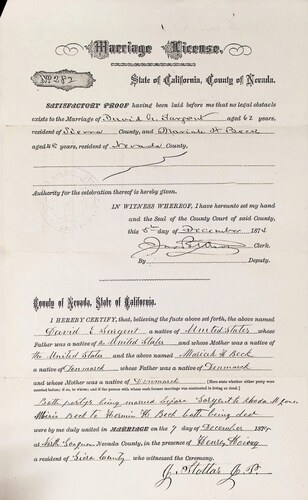 Marriage License.
No 282
State of California, County of Nevada.
SATISFACTORY PROOF having been laid before me that no legal obstacle
exists to the Marriage of David E. Sargent aged 62 years,
resident of Sierra County, and Mariah H Beck
aged 48 years, resident of Nevada County;
Authority for the celebration thereof is hereby given.
IN WITNESS WHEREOF, I have hereunto set my hand
and the Seal of the County Court of said County,
this 5th day of December 1874
Clerk.
By Deputy.
County of Nevada, State of California.
I HEREBY CERTIFY, that, believing the facts above set forth, the above named
David E Sargent a native of United States whose
Father was a native of the United States and whose Mother was a native of
the United States and the above named Mariah H Beck
a native of Denmark whose Father was a native of Denmark
and whose Mother was a native of Denmark
Both partys being married before Sargent to Rhoda
Beck to H Beck both being dead
were by me duly united in MARRIAGE on the 7 day of December 1874
at County, in the presence of Henry
a resident of County who witnessed the Ceremony.
J. Stotlar J.P.